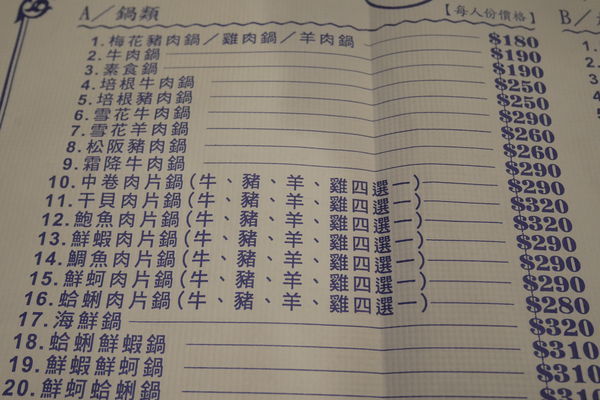 A／鍋類 【每人份價格】 B／
1.梅花豬肉鍋／雞肉鍋／羊肉鍋 $180
2.牛肉鍋 $190
3.素食鍋 $190
4.培根牛肉鍋 $250
5.培根豬肉鍋 $250
6.雪花牛肉鍋 $290
7.雪花羊肉鍋 $260
8.松阪豬肉鍋 $260
9.霜降牛肉鍋 $290
10.中卷肉片鍋(牛、豬、羊、雞四選一) $290
11.干貝肉片鍋(牛、豬、羊、雞四選一) $320
12.鮑魚肉片鍋(牛、豬、羊、雞四選一) $320
13.鮮蝦肉片鍋(牛、豬、羊、雞四選一) $290
14.鯛魚肉片鍋(牛、豬、羊、雞四選一) $290
15.鮮蚵肉片鍋(牛、豬、羊、雞四選一) $290
16.蛤蜊肉片鍋(牛、豬、羊、雞四選一) $280
17.海鮮鍋 $320
18.蛤蜊鮮蝦鍋 $310
19.鮮蝦鮮蚵鍋 $310
20.鮮蚵蛤蜊鍋 $310